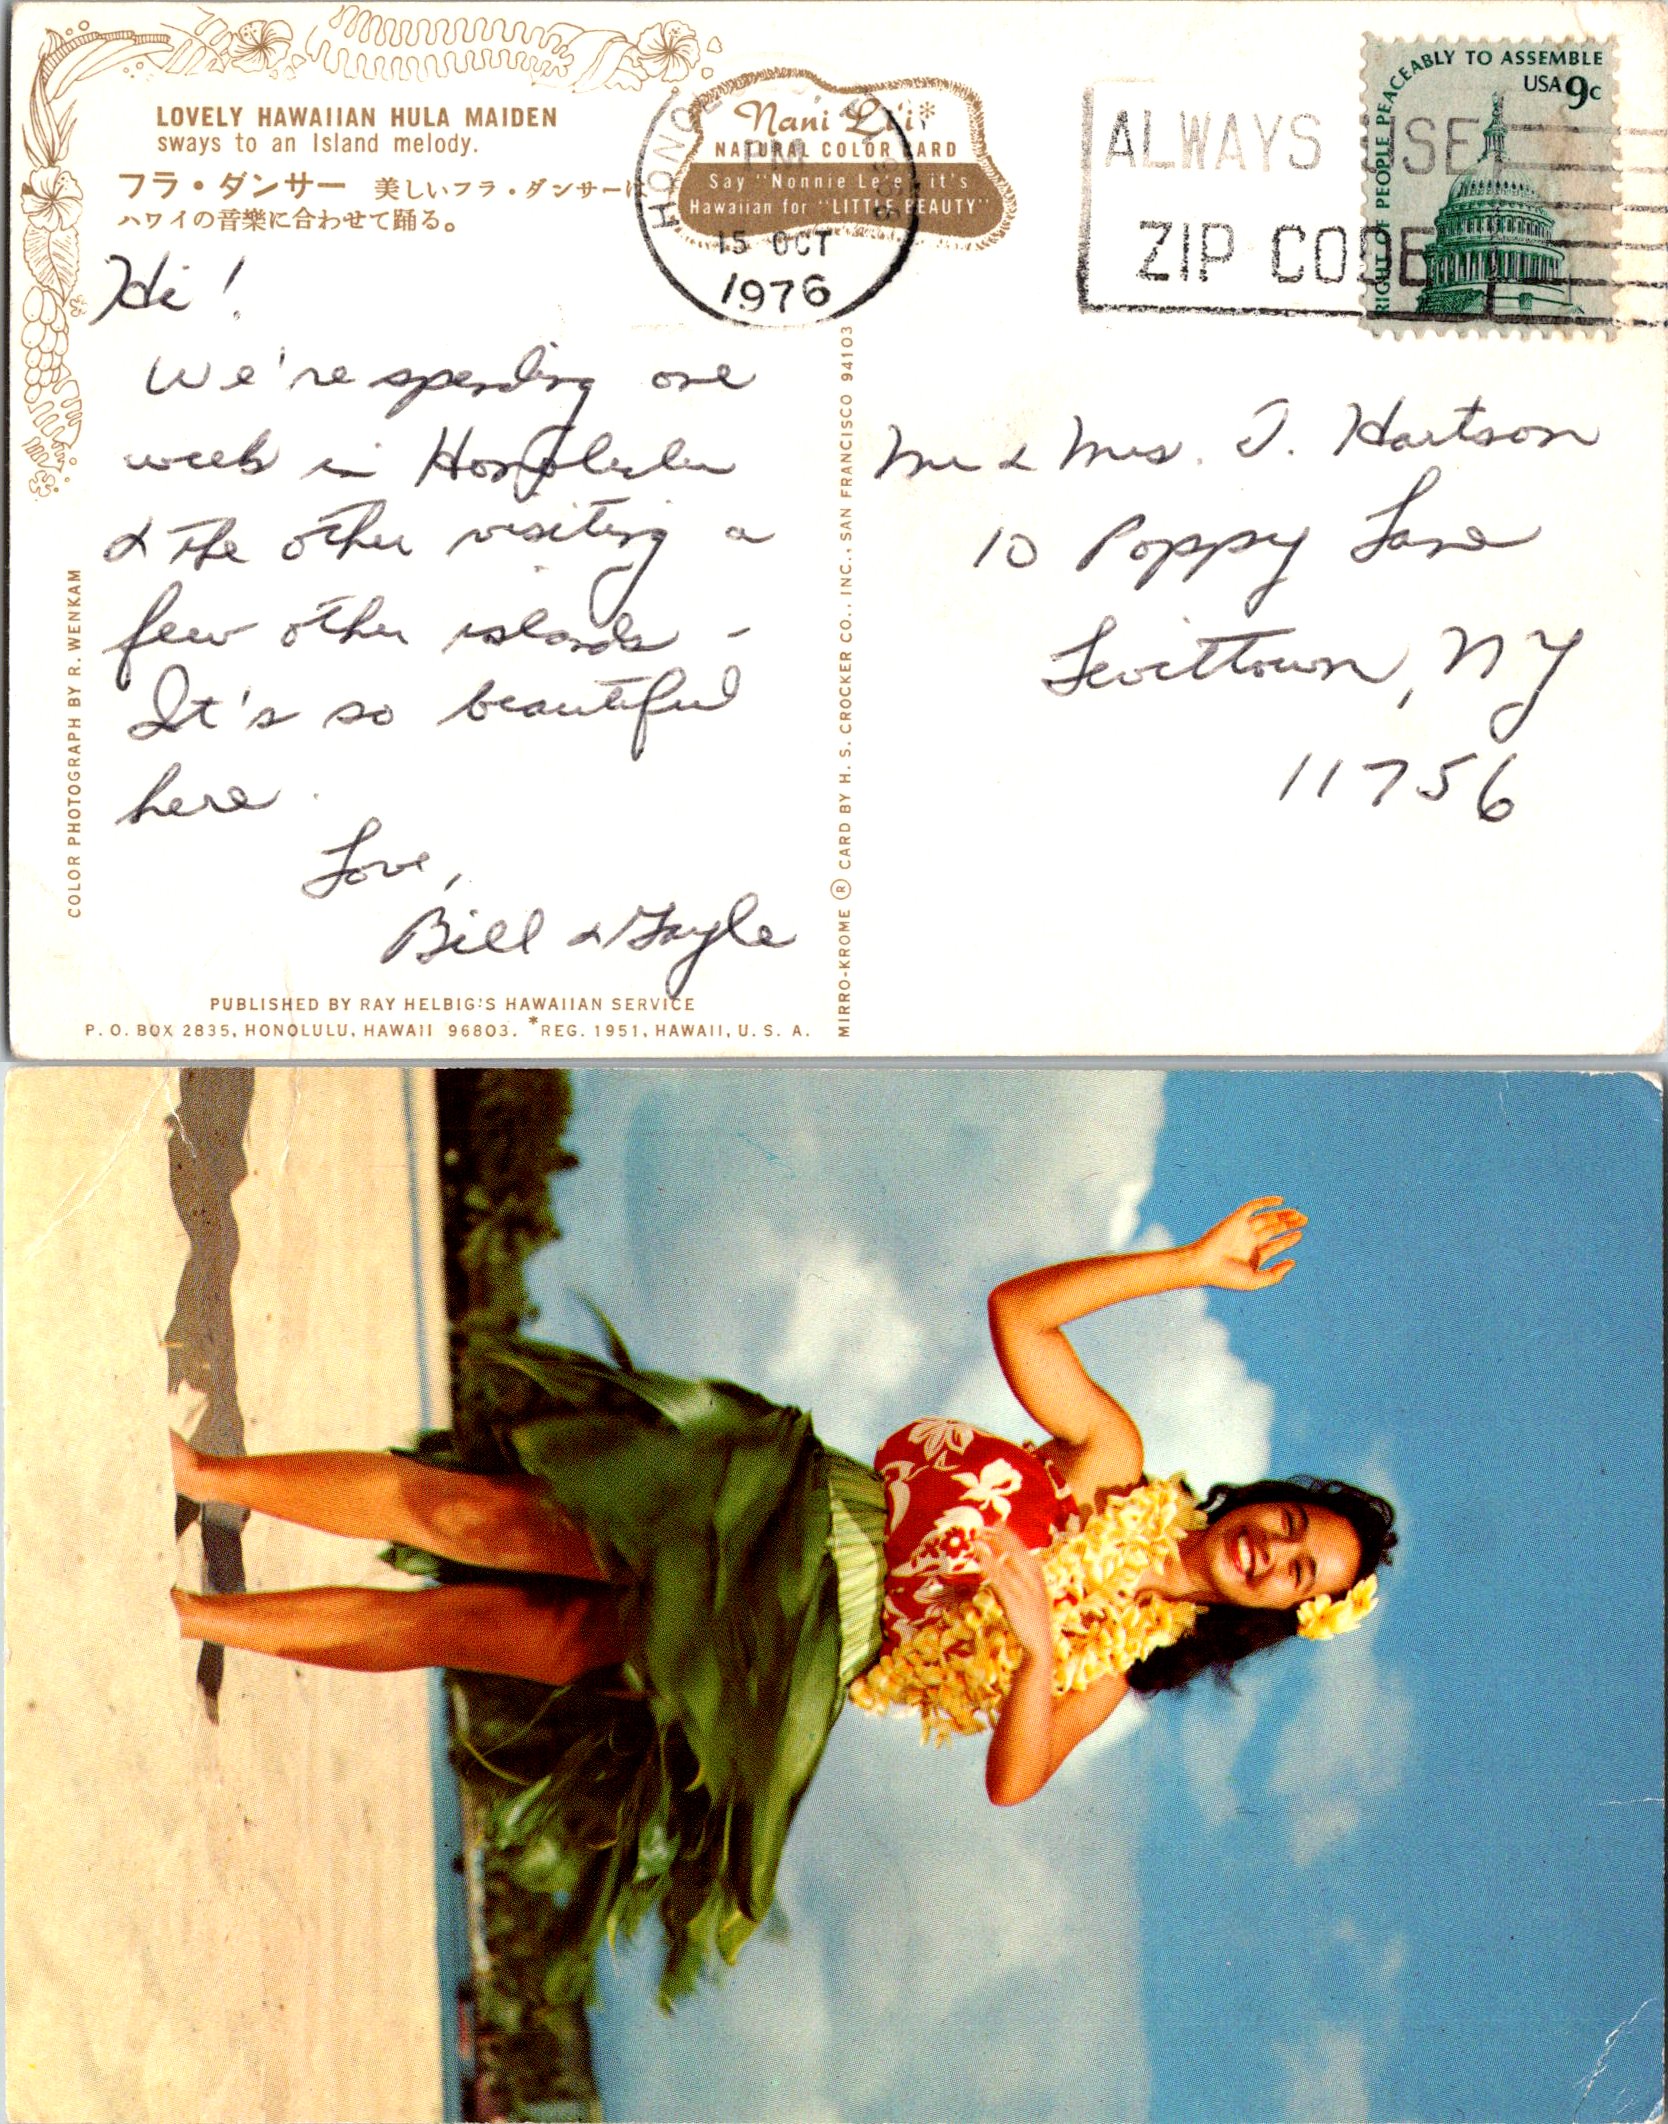 LOVELY HAWAIIAN HULA MAIDEN
sways to an Island melody.
フラ・ダンサー 美しいフラ・ダンサーが
ハワイの音樂に合わせて踊る。
Nani Li'i*
NATURAL COLOR CARD
Say "Nonnie Le'e" it's
Hawaiian for "LITTLE BEAUTY"
HONOL
PM
15 OCT
1976
ALWAYS USE
ZIP CODE
RIGHT OF PEOPLE PEACEABLY TO ASSEMBLE
USA 9c
Hi!
We're spending one
week in Honolulu
& the other visiting a
few other islands -
It's so beautiful
here.
Love,
Bill & Gayle
Mr & Mrs. J. Hartson
10 Poppy Lane
Levittown, NY
11756
COLOR PHOTOGRAPH BY R. WENKAM
MIRRO-KROME ® CARD BY H. S. CROCKER CO., INC., SAN FRANCISCO 94103
PUBLISHED BY RAY HELBIG'S HAWAIIAN SERVICE
P. O. BOX 2835, HONOLULU, HAWAII 96803. *REG. 1951, HAWAII, U. S. A.